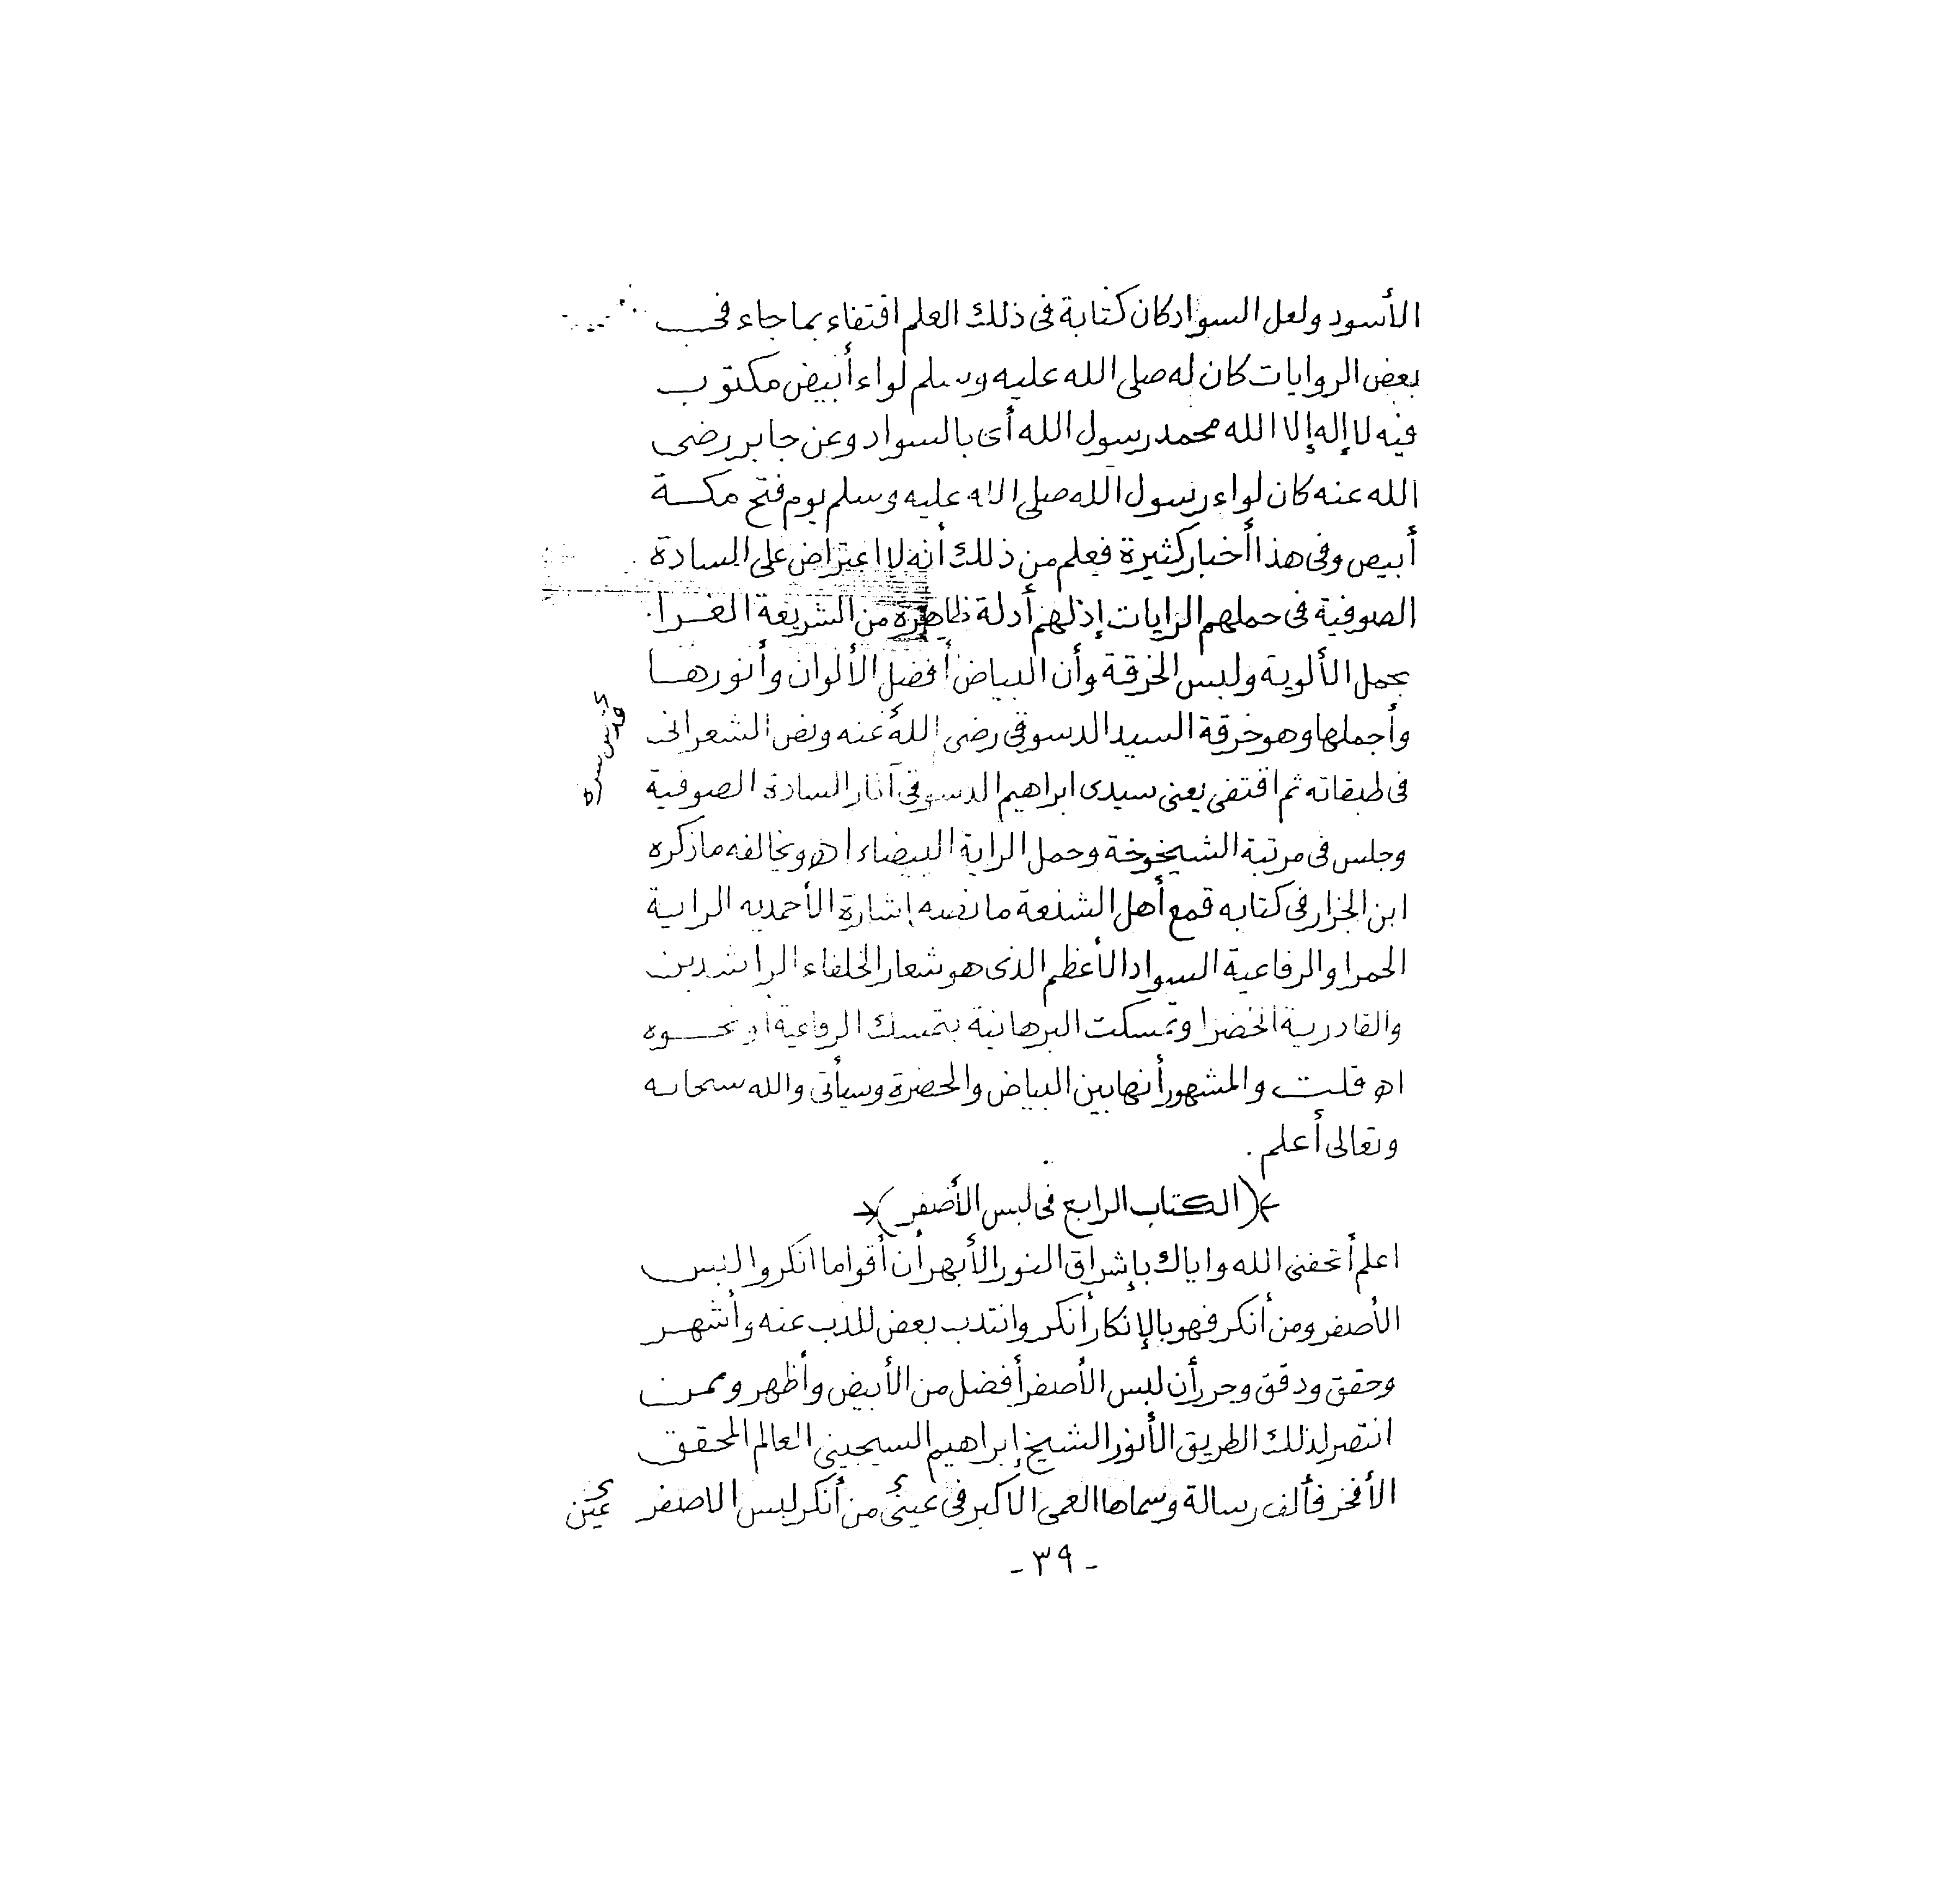 الأسود ولعل السواد كان كتابة فى ذلك العلم اقتفاء بما جاء فى
بعض الروايات كان له صلى الله عليه وسلم لواء أبيض مكتوب
فيه لا إله إلا الله محمد رسول الله أى بالسواد وعن جابر رضى
الله عنه كان لواء رسول الله صلى الله عليه وسلم يوم فتح مكة
أبيض وفى هذا أخبار كثيرة فعلم من ذلك أنه لا اعتراض على السادة
الصوفية فى حملهم الرايات إذ لهم أدلة ظاهرة من الشريعة الغرا
بحمل الألوية ولبس الخرقة وأن البياض أفضل الألوان وأنورها
وأجملها وهو خرقة السيد الدسوقى رضى الله عنه ونص الشعرانى
قدس سره
فى طبقاته ثم اقتفى يعنى سيدى ابراهيم الدسوقى آثار السادة الصوفية
وجلس فى مرتبة الشيخوخة وحمل الراية البيضاء اهـ ويخالفه ما ذكره
ابن الجزار فى كتابه قمع أهل الشنعة ما نصه إشارة الأحمديه الراية
الحمرا والرفاعية السواد الأعظم الذى هو شعار الخلفاء الراشدين
والقادرية الخضرا وتمسكت البرهانية بتمسك الرفاعية أو نحوه
اهـ قلت والمشهور أنها بين البياض والخضرة وسيأتى والله سبحانه
وتعالى أعلم .
(الكتاب الرابع فى لبس الأصفر)
اعلم أتحفنى الله واياك بإشراق النور الأبهر أن أقواما انكروا لبس
الأصفر ومن أنكر فهو بالإنكار أنكر وانتدب بعض للذب عنه وأشهر
وحقق ودقق وحرر أن لبس الأصفر أفضل من الأبيض وأظهر وممن
انتصر لذلك الطريق الأنور الشيخ إبراهيم السجينى العالم المحقق
الأفخر فألف رسالة وسماها العمى الاكبر فى عينى من أنكر لبس الاصفر
- ٣٩ -